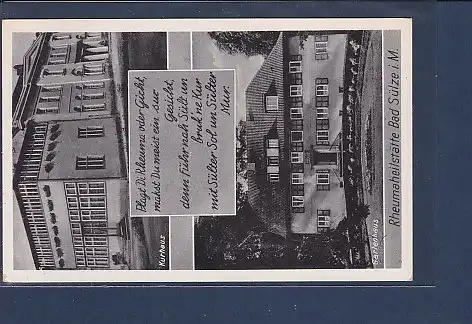 Plagt Di Rheuma oder Gicht,
makst Du meist ein sur
Gesicht,
denn führ nach Sült un
bruk ne Kur
mit Sülter Sol un Sülter
Mur.
Kurhaus
Rheumaheilstätte Bad Sülze i. M.